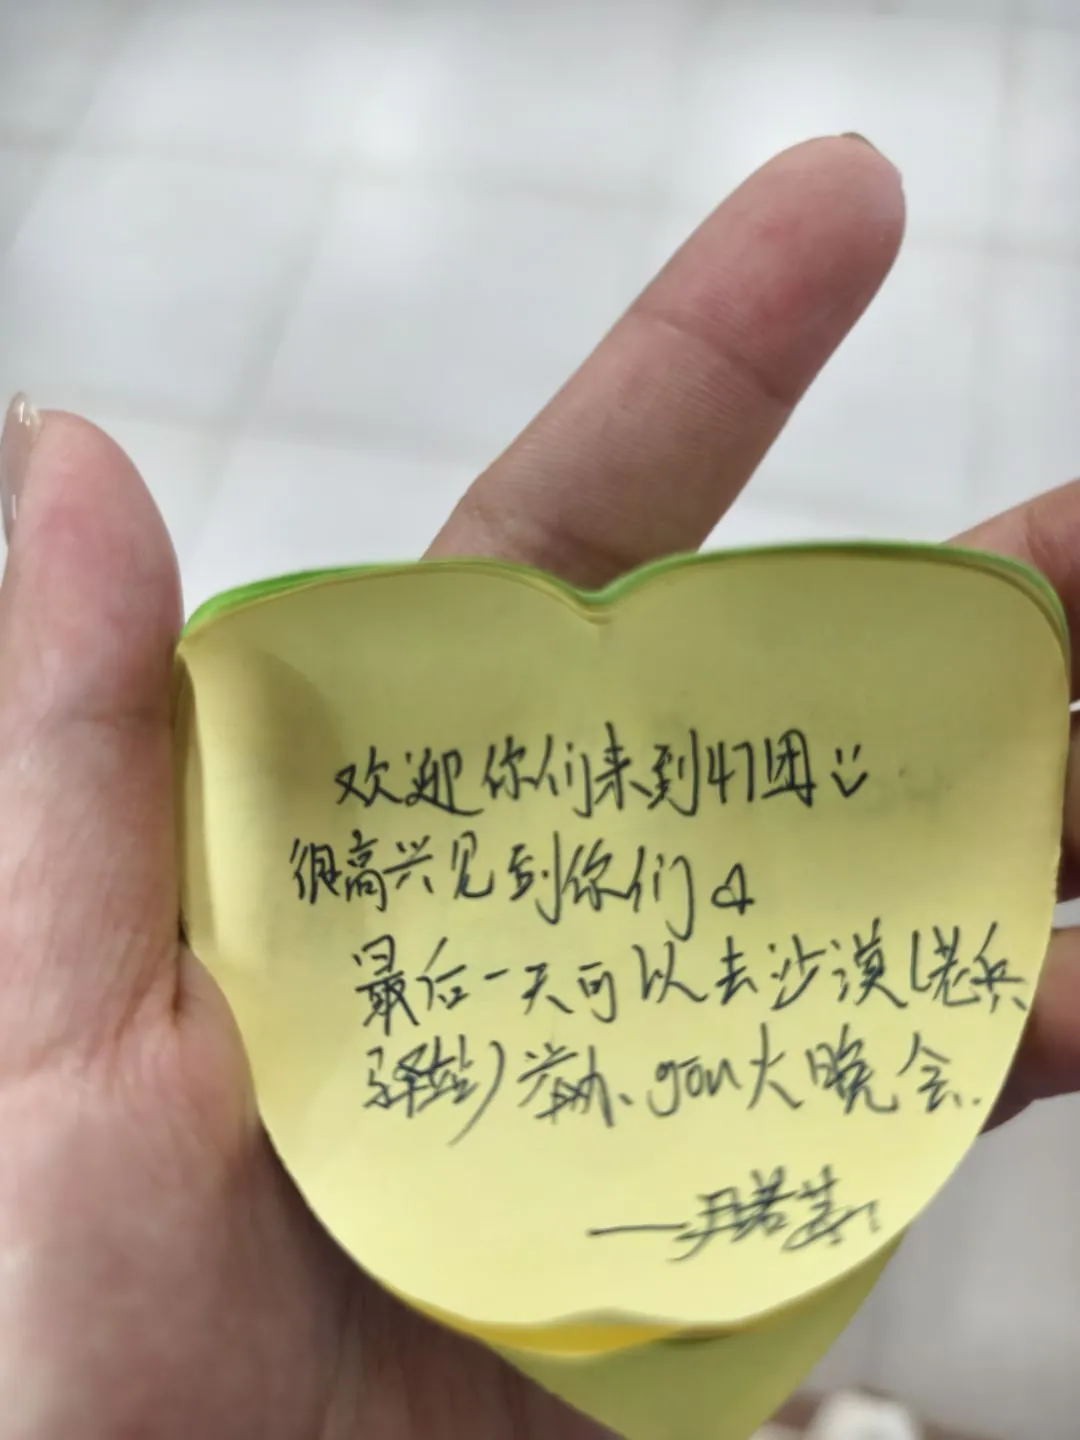 欢迎你们来到47团
很高兴见到你们
最后一天可以去沙漠(老兵
驿站)举办、gou火晚会.
——尹若